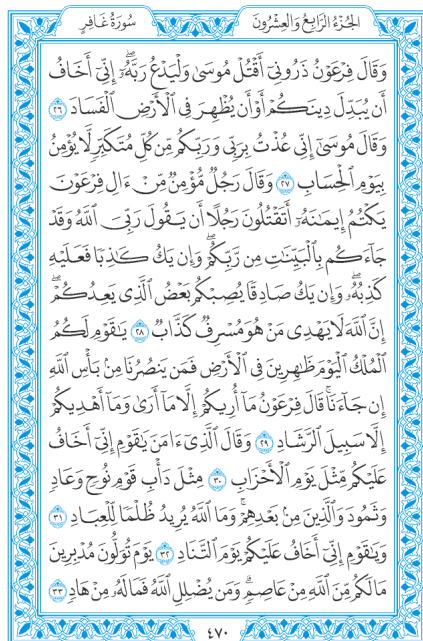 الجُزْءُ الرَّابِعُ وَالعِشْرُونَ
سُورَةُ غَافِرٍ
وَقَالَ فِرْعَوْنُ ذَرُونِىٓ أَقْتُلْ مُوسَىٰ وَلْيَدْعُ رَبَّهُۥٓ ۖ إِنِّىٓ أَخَافُ
أَن يُبَدِّلَ دِينَكُمْ أَوْ أَن يُظْهِرَ فِى ٱلْأَرْضِ ٱلْفَسَادَ ٢٦
وَقَالَ مُوسَىٰٓ إِنِّى عُذْتُ بِرَبِّى وَرَبِّكُم مِّن كُلِّ مُتَكَبِّرٍ لَّا يُؤْمِنُ
بِيَوْمِ ٱلْحِسَابِ ٢٧ وَقَالَ رَجُلٌ مُّؤْمِنٌ مِّنْ ءَالِ فِرْعَوْنَ
يَكْتُمُ إِيمَٰنَهُۥٓ أَتَقْتُلُونَ رَجُلًا أَن يَقُولَ رَبِّىَ ٱللَّهُ وَقَدْ
جَآءَكُم بِٱلْبَيِّنَٰتِ مِن رَّبِّكُمْ ۖ وَإِن يَكُ كَٰذِبًا فَعَلَيْهِ
كَذِبُهُۥ ۖ وَإِن يَكُ صَادِقًا يُصِبْكُم بَعْضُ ٱلَّذِى يَعِدُكُمْ ۖ
إِنَّ ٱللَّهَ لَا يَهْدِى مَنْ هُوَ مُسْرِفٌ كَذَّابٌ ٢٨ يَٰقَوْمِ لَكُمُ
ٱلْمُلْكُ ٱلْيَوْمَ ظَٰهِرِينَ فِى ٱلْأَرْضِ فَمَن يَنصُرُنَا مِنۢ بَأْسِ ٱللَّهِ
إِن جَآءَنَا ۚ قَالَ فِرْعَوْنُ مَآ أُرِيكُمْ إِلَّا مَآ أَرَىٰ وَمَآ أَهْدِيكُمْ
إِلَّا سَبِيلَ ٱلرَّشَادِ ٢٩ وَقَالَ ٱلَّذِىٓ ءَامَنَ يَٰقَوْمِ إِنِّىٓ أَخَافُ
عَلَيْكُم مِّثْلَ يَوْمِ ٱلْأَحْزَابِ ٣٠ مِثْلَ دَأْبِ قَوْمِ نُوحٍ وَعَادٍ
وَثَمُودَ وَٱلَّذِينَ مِنۢ بَعْدِهِمْ ۚ وَمَا ٱللَّهُ يُرِيدُ ظُلْمًا لِّلْعِبَادِ ٣١
وَيَٰقَوْمِ إِنِّىٓ أَخَافُ عَلَيْكُمْ يَوْمَ ٱلتَّنَادِ ٣٢ يَوْمَ تُوَلُّونَ مُدْبِرِينَ
مَا لَكُم مِّنَ ٱللَّهِ مِنْ عَاصِمٍ ۗ وَمَن يُضْلِلِ ٱللَّهُ فَمَا لَهُۥ مِنْ هَادٍ ٣٣
٤٧٠